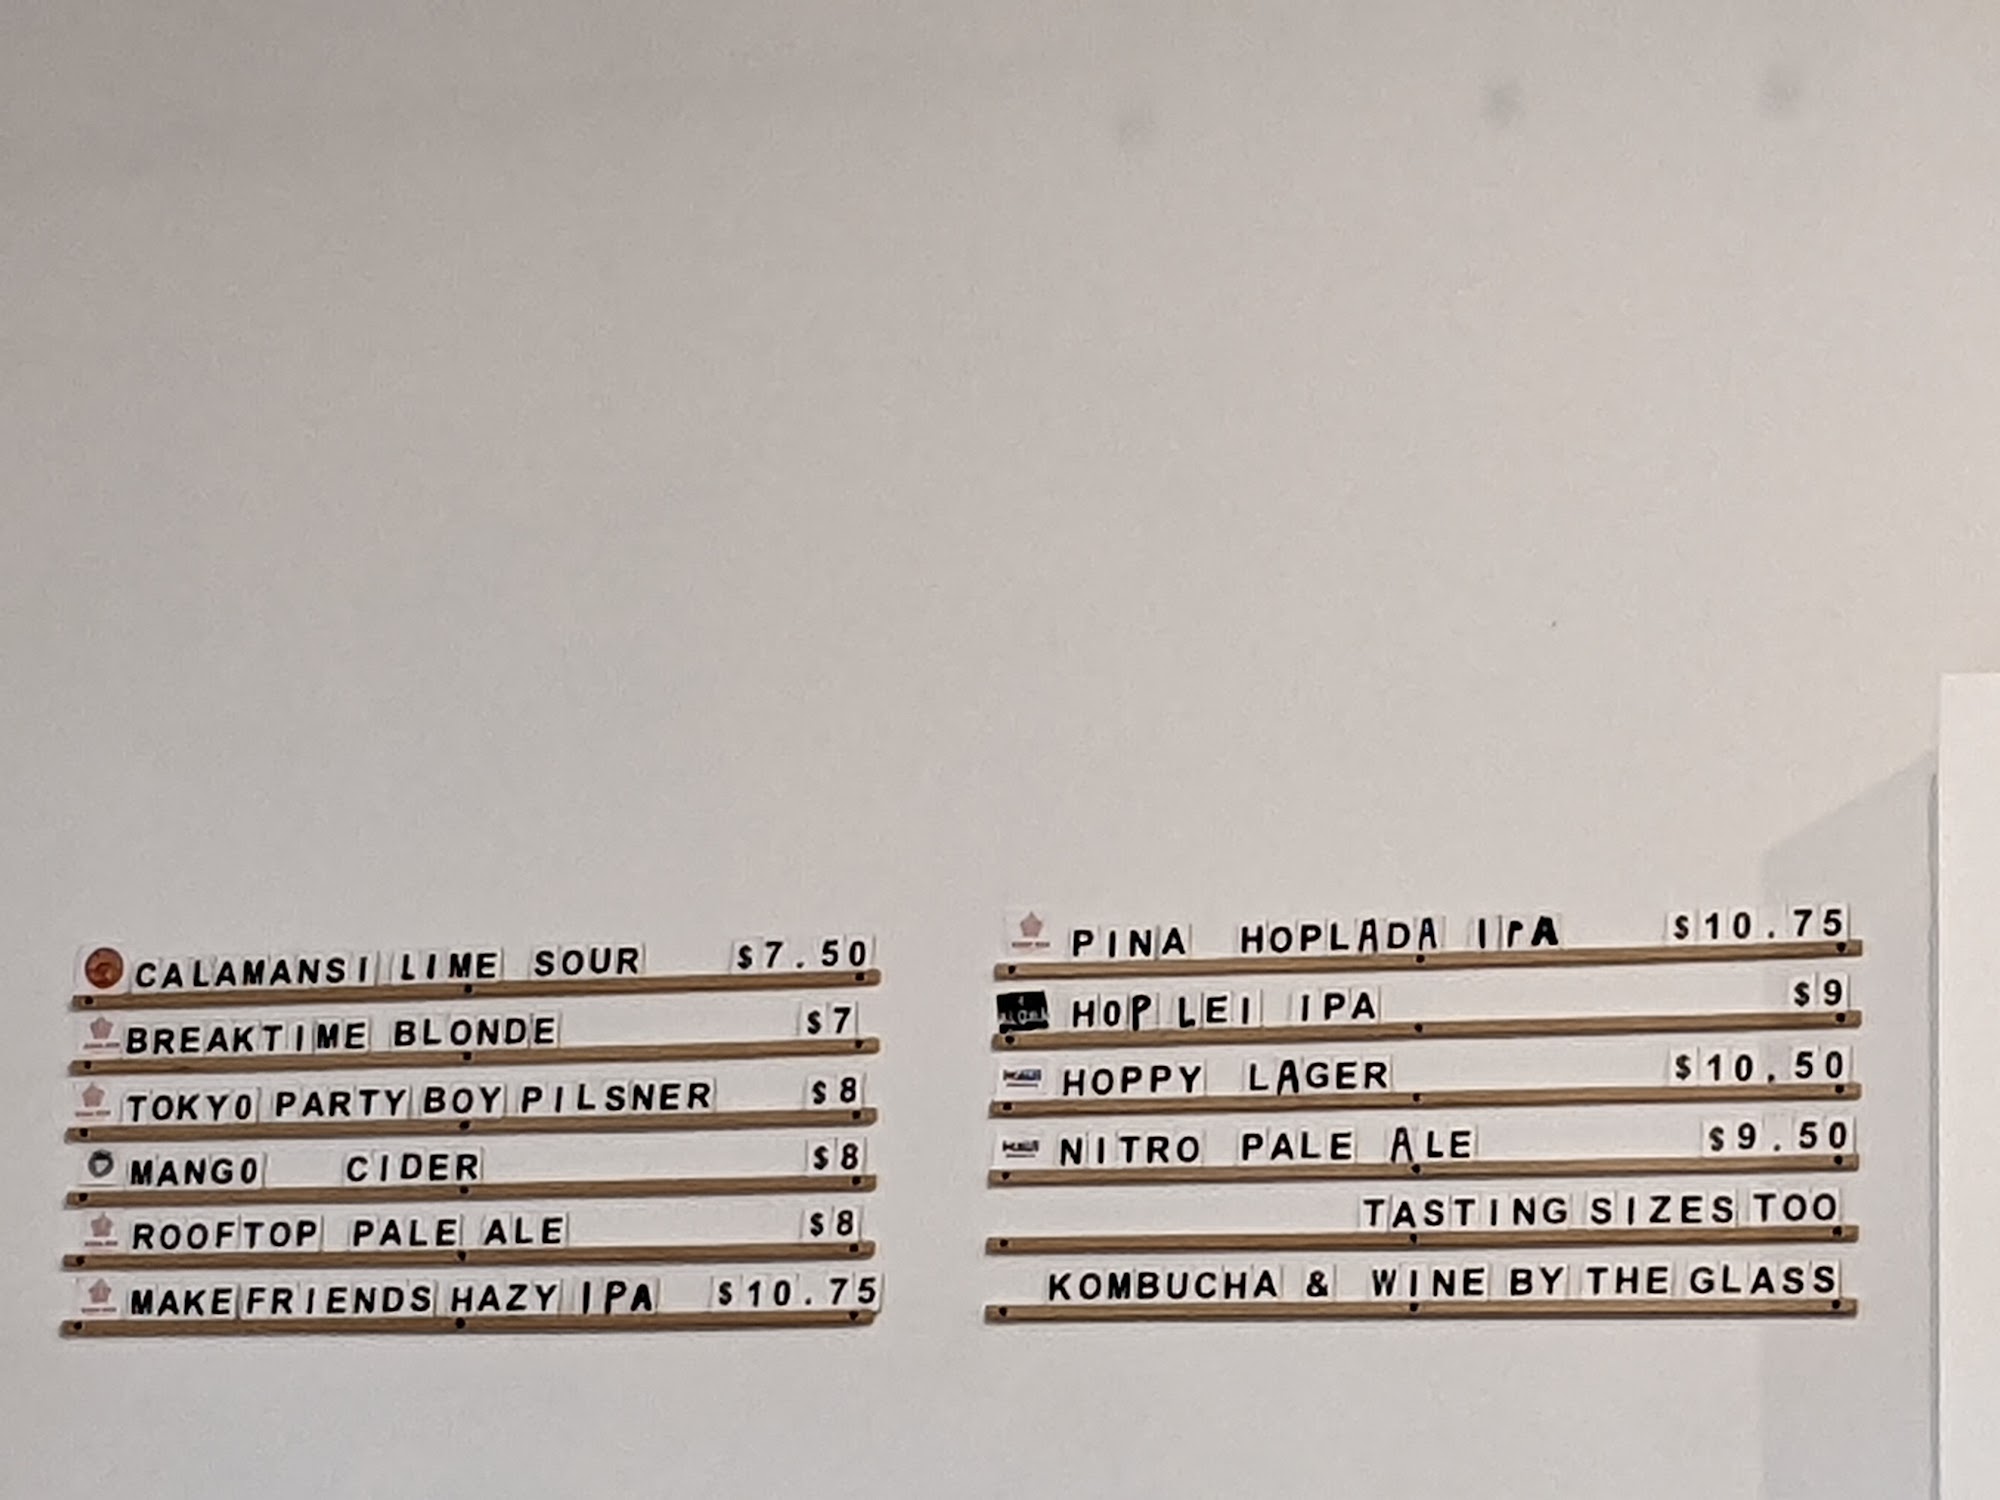 CALAMANSI LIME SOUR $7.50
BREAKTIME BLONDE $7
TOKYO PARTY BOY PILSNER $8
MANGO CIDER $8
ROOFTOP PALE ALE $8
MAKE FRIENDS HAZY IPA $10.75
PINA HOPLADA IPA $10.75
HOP LEI IPA $9
HOPPY LAGER $10.50
NITRO PALE ALE $9.50
TASTING SIZES TOO
KOMBUCHA & WINE BY THE GLASS